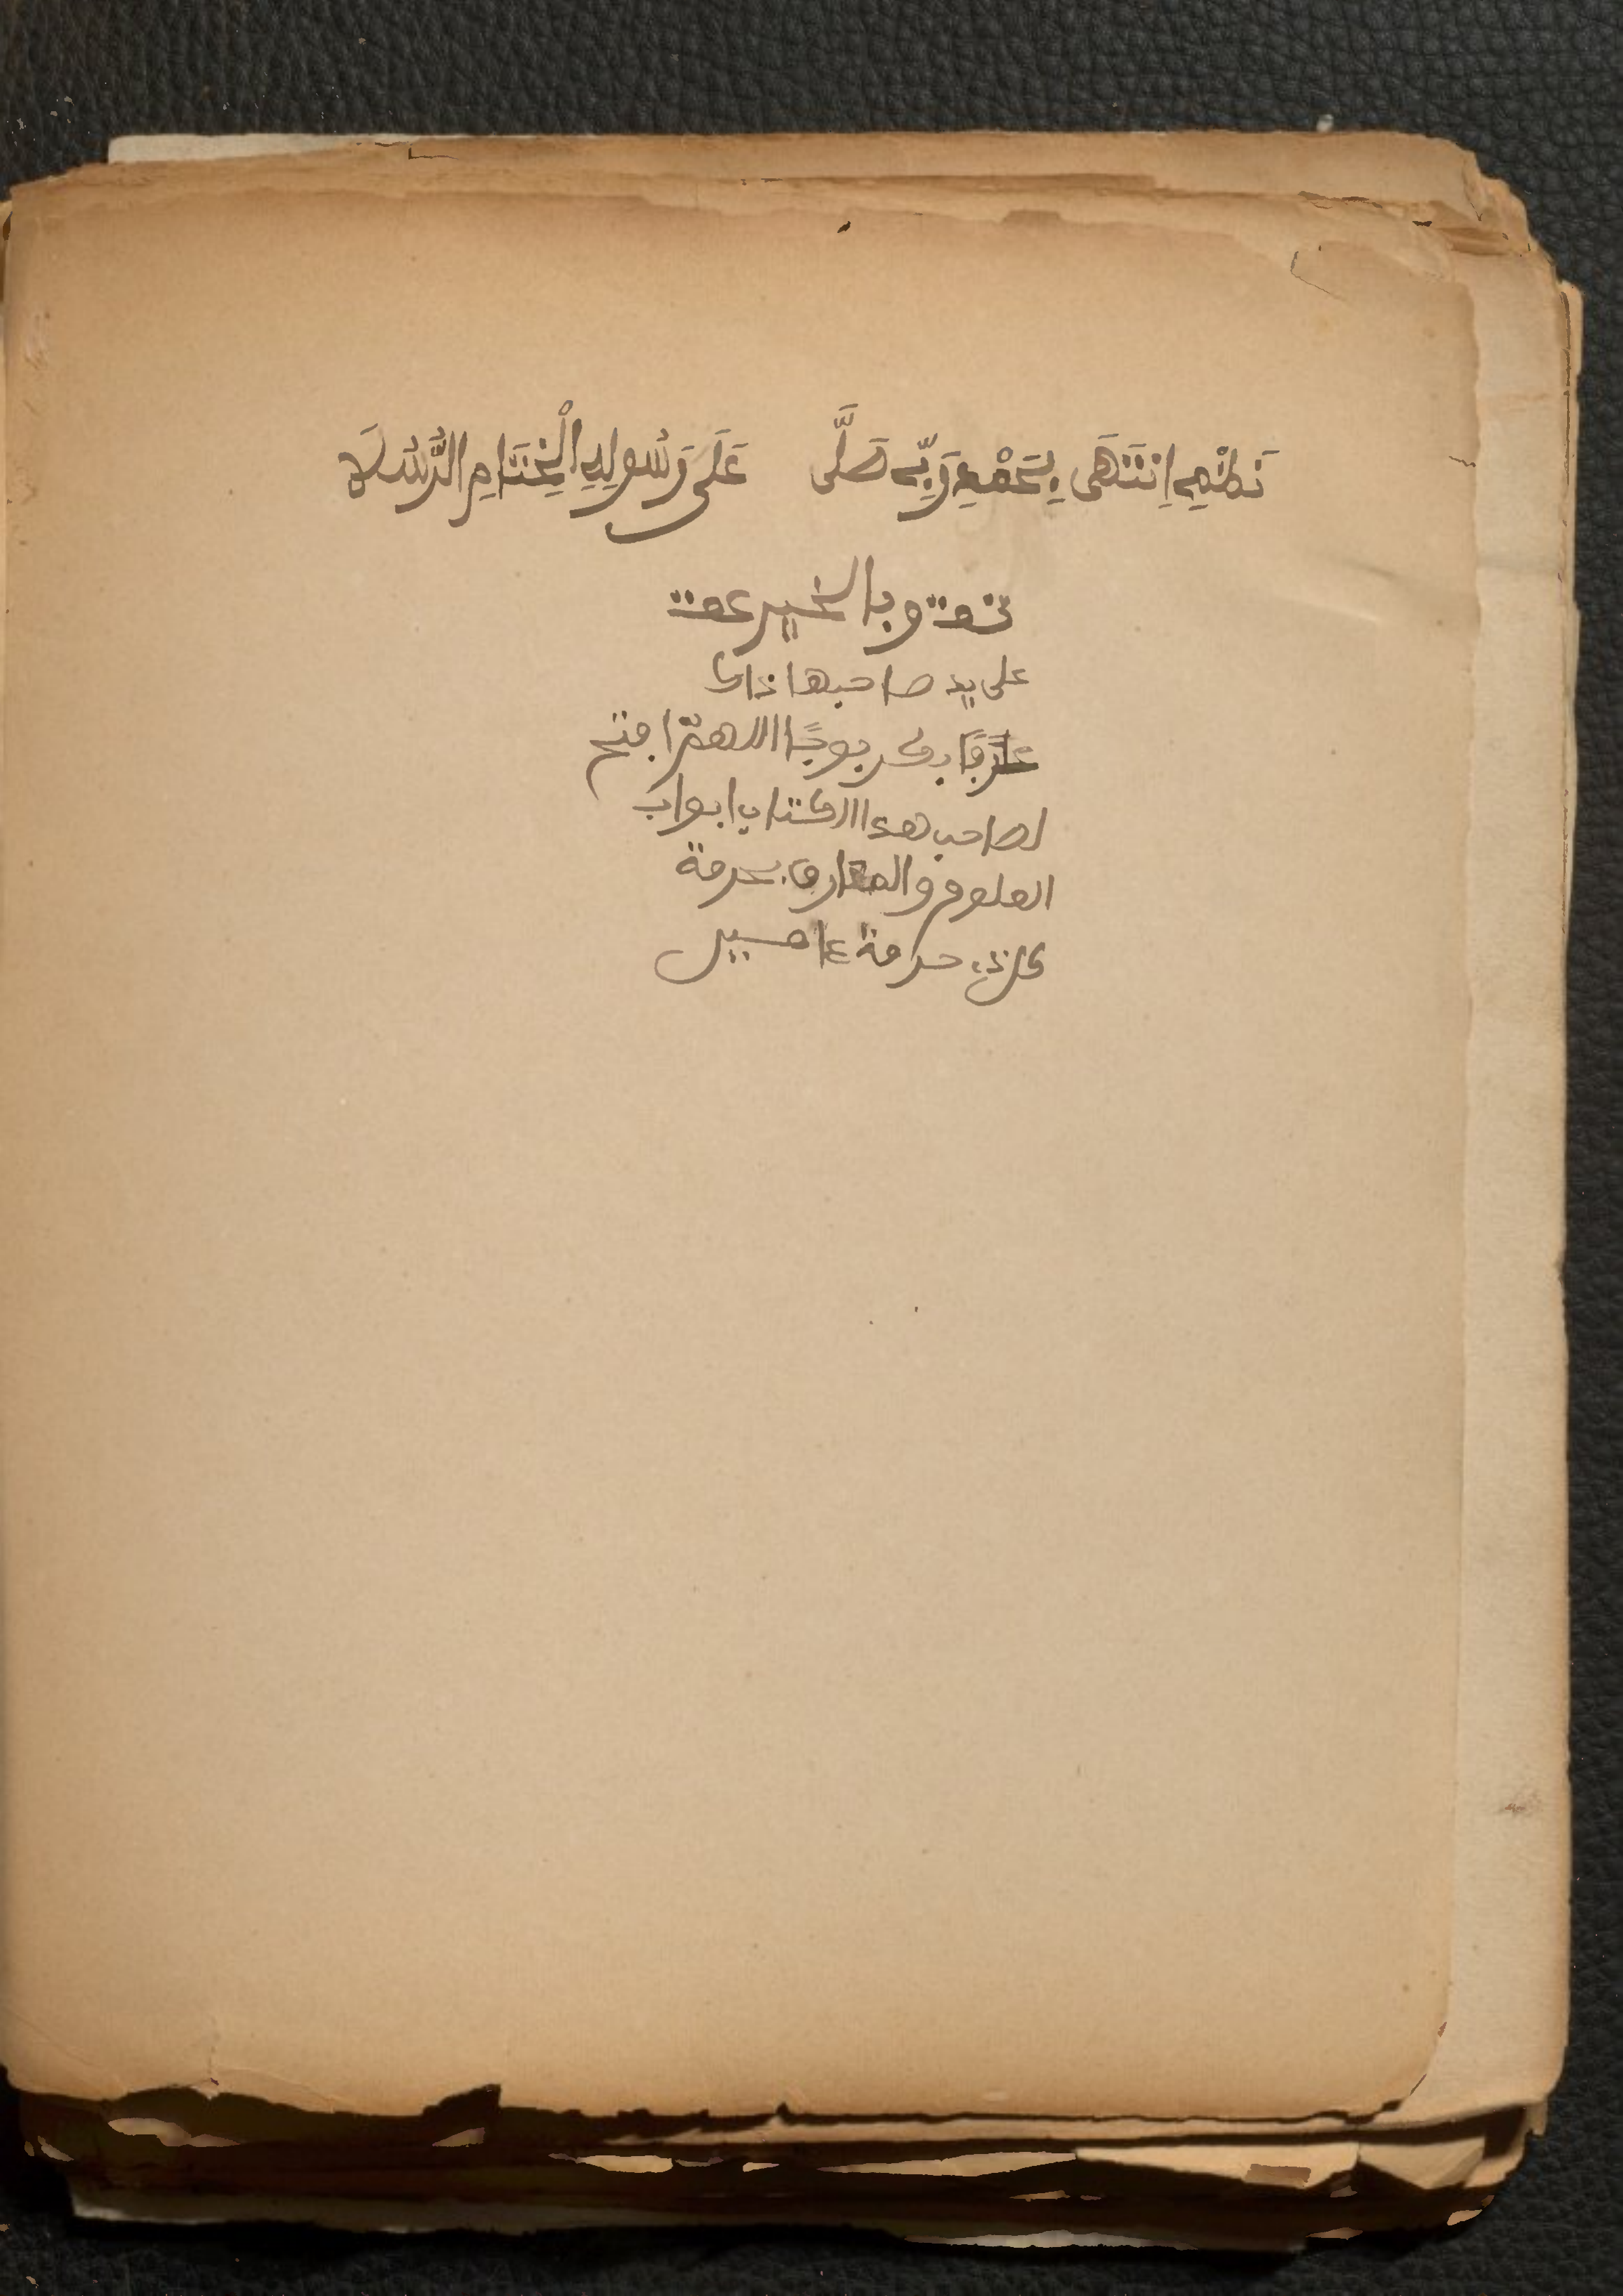 نَظْمِي اِنْتَهَى بِحَمْدِ رَبِّي صَلَّى عَلَى رَسُولِهِ الْخِتَامِ الرُّسُلَا
تمت وبالخير عمت
على يد صاحبها
بوجًا اللهمّ افتح
لصاحب هذا الكتاب ابواب
العلوم والمعارف بحرمة
حرمة